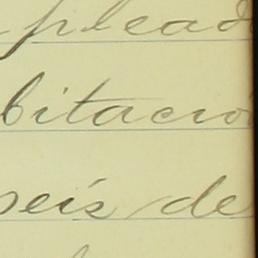 plead
bitació
seis de